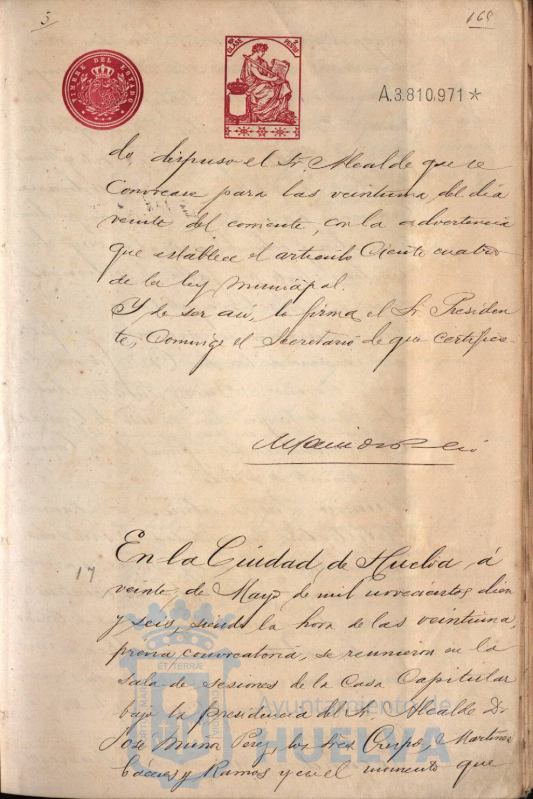 5
165
TIMBRE DEL ESTADO
CLASE
A.3.810.971*
do, dispuso el Sr. Alcalde que se
convocase para las veintiuna del dia
veinte del corriente, con la advertencia
que establece el articulo Ciento cuatro
de la ley Municipal.
Y de ser asi, lo firma el Sr. Presiden
te, Conmigo el Secretario de que certifico.
17
En la Ciudad de Huelva á
veinte de Mayo de mil novecientos diez
y seis, siendo la hora de las veintiuna,
previa convocatoria, se reunieron en la
sala de sesiones de la Casa Capitular
bajo la presidencia del Sr. Alcalde Dn
José Muñoz Perez, los Sres Crespo, Martinez
Cádenas y Ramos y en el momento que
Ayuntamiento de
HUELVA